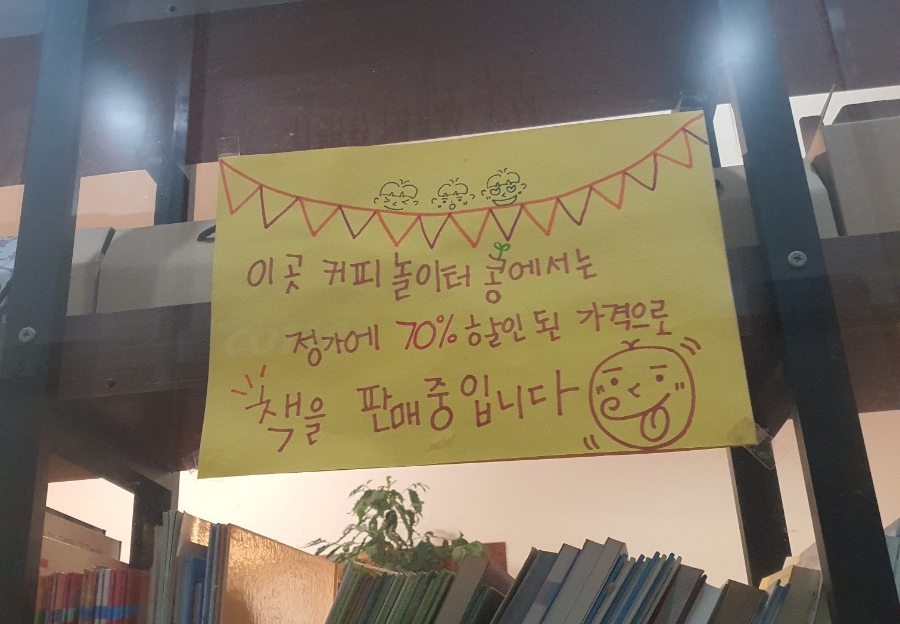 이곳 커피 놀이터 콩에서는
정가에 70% 할인된 가격으로
책을 판매중입니다